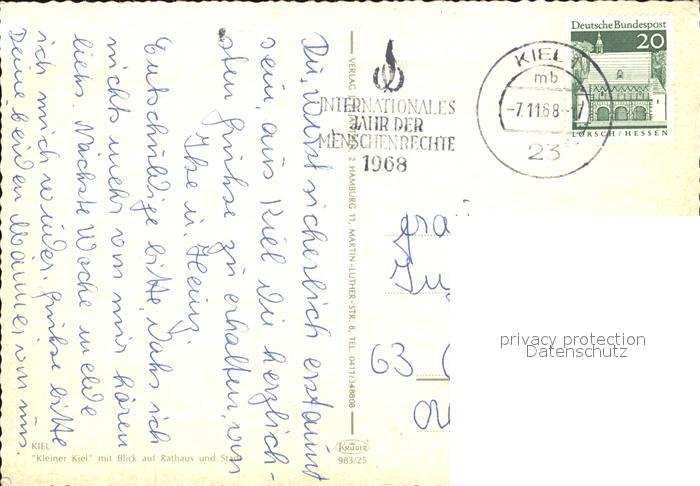 Du wirst sicherlich erstaunt
sein, aus Kiel die herzlich-
sten Grüße zu erhalten, von
Ilse u. Heinz.
Entschuldige bitte, daß ich
nichts mehr von mir hören
ließ. Nächste Woche melde
ich mich wieder. Grüße bitte
Deine beiden Männer von uns.
KIEL
"Kleiner Kiel" mit Blick auf Rathaus und
VERLAG
2 HAMBURG 11, MARTIN-LUTHER-STR. 8, TEL. 0411/348808
KRÜGER
983/25
INTERNATIONALES
JAHR DER
MENSCHENRECHTE
1968
KIEL
mb
-7.11.68-
23
Deutsche Bundespost
20
LORSCH/HESSEN
63
privacy protection
Datenschutz